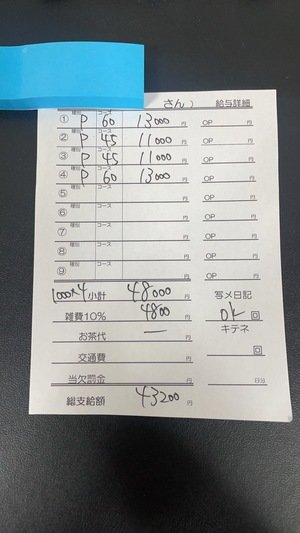 さん） 給与詳細
種別 コース
① P 60 13000 円 OP 円
種別 コース
② P 45 11000 円 OP 円
種別 コース
③ P 45 11000 円 OP 円
種別 コース
④ P 60 13000 円 OP 円
種別 コース
⑤ 円 OP 円
種別 コース
⑥ 円 OP 円
種別 コース
⑦ 円 OP 円
種別 コース
⑧ 円 OP 円
種別 コース
⑨ 円 OP 円
1000×4 小計 48000 円 写メ日記
雑費10% 4800 円 OK 回
お茶代 ー 円 キテネ
交通費 円 回
当欠罰金 円 日分
総支給額 43200 円